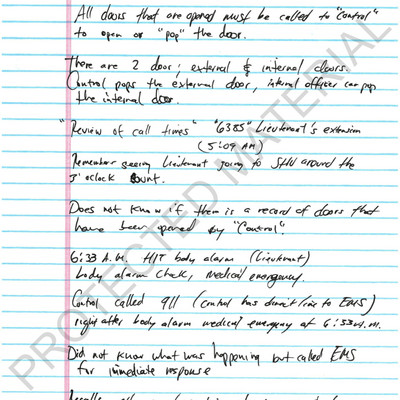 All doors that are opened must be called to "Control"
to open or "pop" the door.
There are 2 doors; external & internal doors.
Control pops the external door, internal officer can pop
the internal door.
"Review of call times" "6385" Lieutenant's extension
(5:09 AM)
Remember seeing Lieutenant going to SHU around the
5 o'clock count.
Does not know if there is a record of doors that
have been opened by "Control".
6:33 A.M. HIT body alarm (Lieutenant)
body alarm check, medical emergency.
Control called 911 (Control has direct line to EMS)
right after body alarm medical emergency at 6:33 A.M.
Did not know what was happening but called EMS
for immediate response
PROTECTED MATERIAL